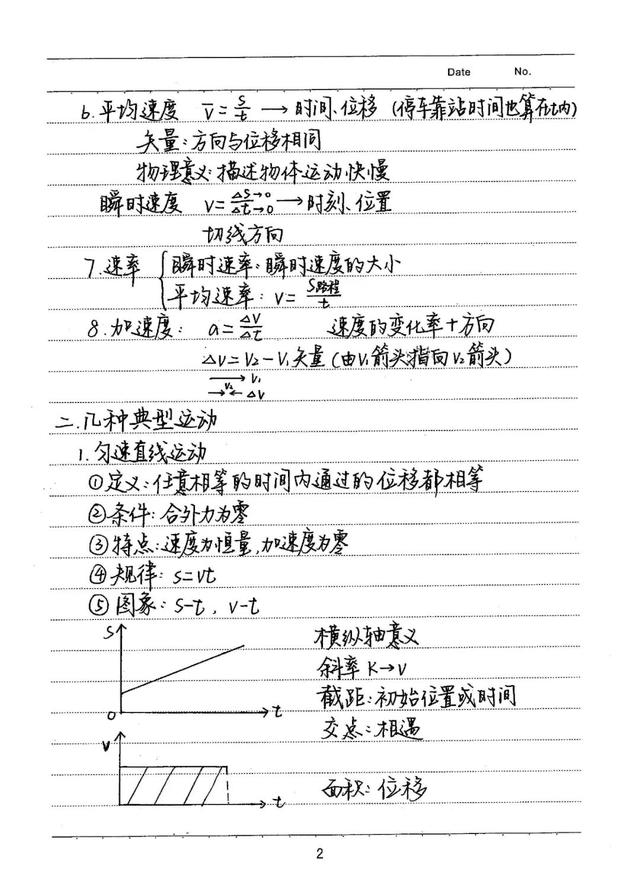 Date No.
6.平均速度 v̄=s/t → 时间、位移 (停车靠站时间也算在t内)
矢量:方向与位移相同
物理意义:描述物体运动快慢
瞬时速度 v=Δs→0/Δt→0 → 时刻、位置
切线方向
7.速率 { 瞬时速率:瞬时速度的大小
平均速率:v=S路程/t
8.加速度: a=Δv/Δt 速度的变化率+方向
Δv=v₂-v₁矢量(由v₁箭头指向v₂箭头)
v₁
v₂ Δv
二.几种典型运动
1.匀速直线运动
①定义:任意相等的时间内通过的位移都相等
②条件:合外力为零
③特点:速度为恒量,加速度为零
④规律:s=vt
⑤图象:s-t,v-t
s
横纵轴意义
斜率K→v
截距:初始位置或时间
0 t
交点:相遇
v
面积:位移
t
2